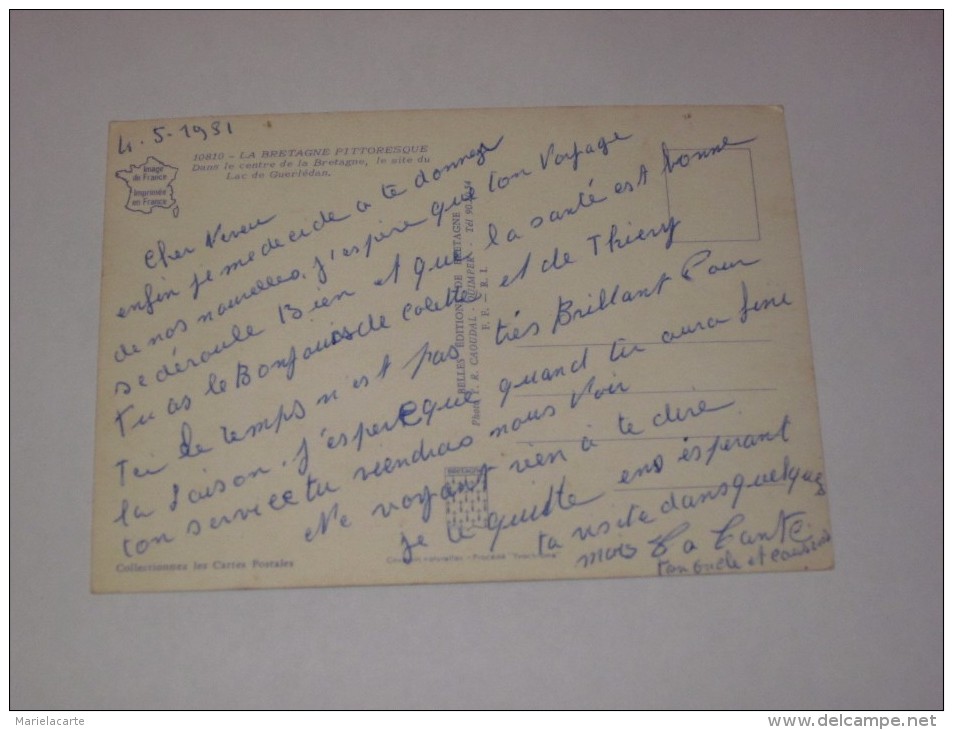 4.5.1981
10810 - LA BRETAGNE PITTORESQUE
Dans le centre de la Bretagne, le site du
Lac de Guerlédan.
Image
de France
Imprimée
en France
Cher Neveu
enfin je me decide à te donner
de nos nouvelles. j'espère que ton Voyage
se déroule Bien et que la santé est bonne
tu as le Bonjour de Colette et de Thiery
le temps n'est pas très Brillant Pour
la saison. J'espère que quand tu aura fini
ton service tu viendras nous Voir
Ne voyant rien à te dire
je te quitte en espérant
ta visite dans quelques
mois Ta Tante
ton oncle et cousins
BELLES EDITIONS DE BRETAGNE
Photo T. R. CAOUDAL - QUIMPER - Tél
BRETAGNE
Collectionnez les Cartes Postales
Marielacarte
www.delcampe.net